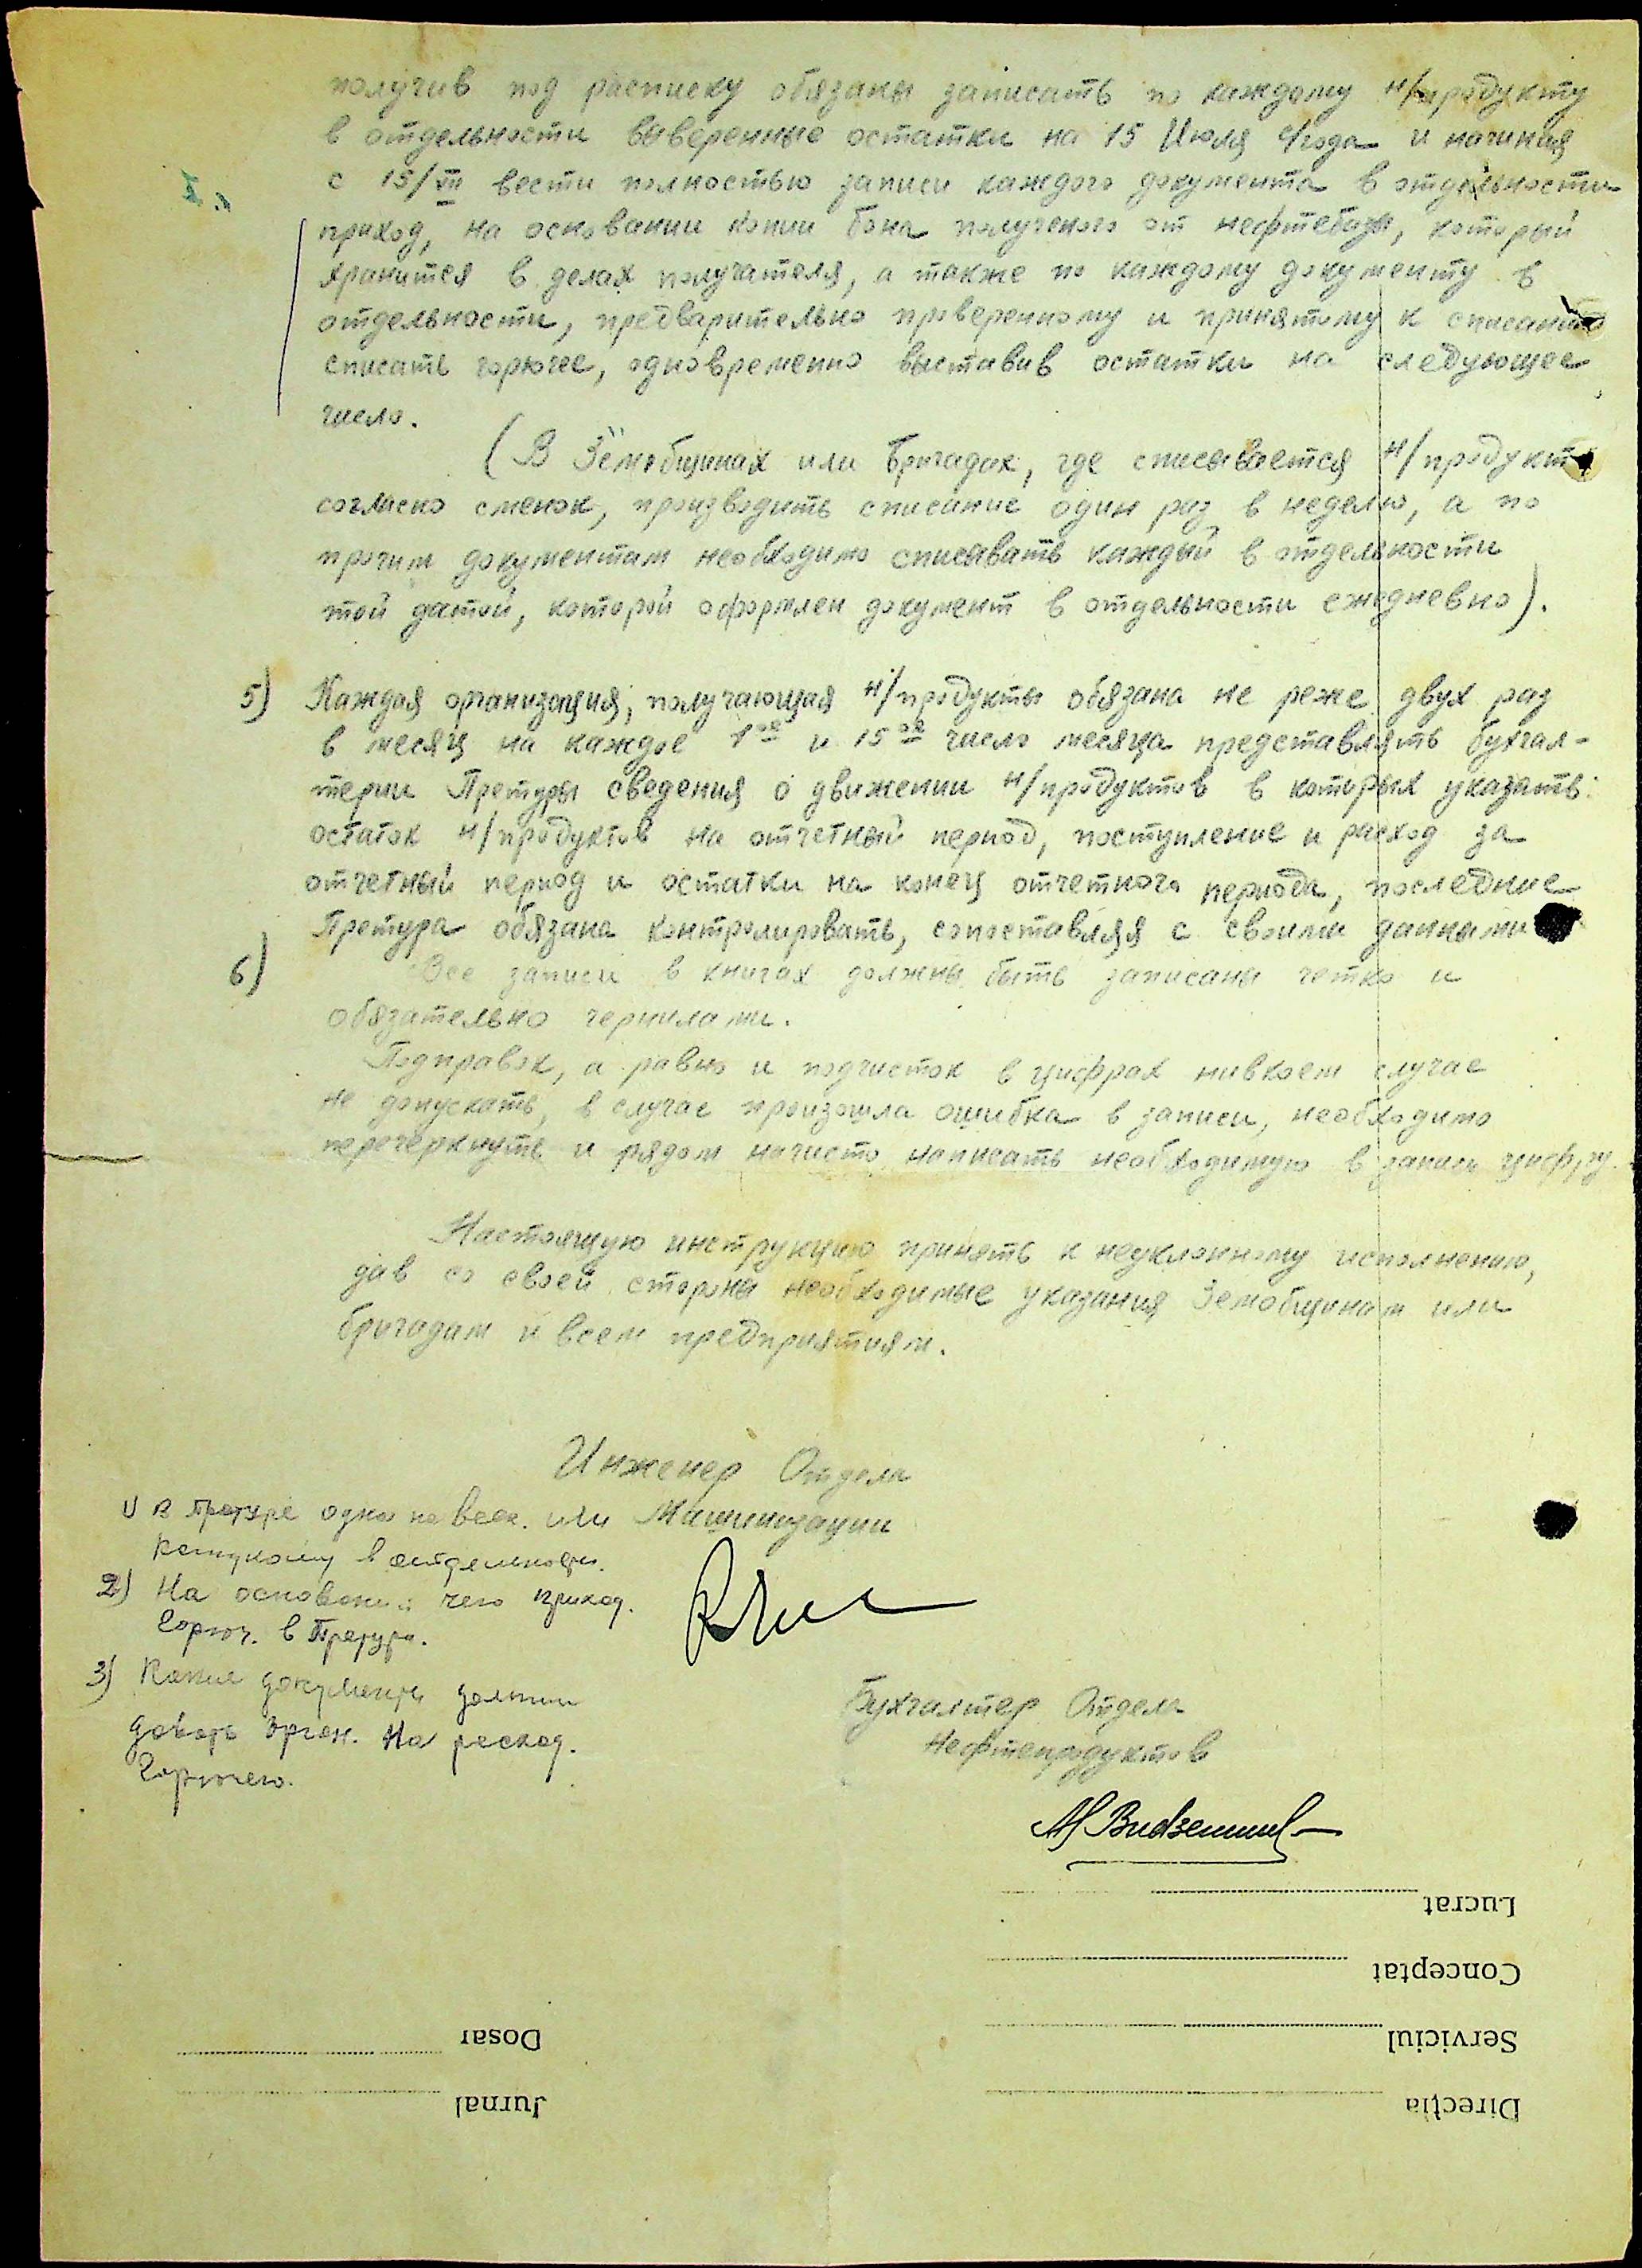 получив под расписку обязаны записать по каждому н/продукту
в отдельности выверенные остатки на 15 Июля с/года и начиная
с 15/VII вести полностью записи каждого документа в отдельности
приход, на основании копии бона полученого от нефтебазы, который
хранится в делах получателя, а также по каждому документу в
отдельности, предварительно проверенному и принятому к списанию
списать горючее, одновременно выставив остатки на следующее
число.
(В Земобщинах или бригадах, где списывается н/продукт
согласно сменок, производить списание один раз в неделю, а по
прочим документам необходимо списывать каждый в отдельности
той датой, которой оформлен документ в отдельности ежедневно).
5) Каждая организация, получающая н/продукты обязана не реже двух раз
в месяц на каждое 1ое и 15ое число месяца представлять бухгал-
терии Претуры сведения о движении н/продуктов в которых указать:
остаток н/продуктов на отчетный период, поступление и расход за
отчетный период и остатки на конец отчетного периода, последние
Претура обязана контролировать, сопоставляя с своими данными
6) Все записи в книгах должны быть записаны четко и
обязательно чернилами.
Подправок, а равно и подчисток в цифрах нивкоем случае
не допускать, в случае произошла ошибка в записи, необходимо
перечеркнуть и рядом начисто написать необходимую в запись цифру.
Настоящую инструкцию принять к неуклонному исполнению,
дав со своей стороны необходимые указания Земобщинам или
бригадам и всем предприятиям.
Инженер Отдела
Машинизации
1) В Претуре одна на всех. или
каждому в отдельности.
2) На основании чего приход.
Горюч. в Претуре.
3) Какие документы должны
давать орган. на расход.
Горючего.
Бухгалтер Отдела
Нефтепродуктов
Lucrat
Conceptat
Serviciul
Dosar
Direcţia
Jurnal